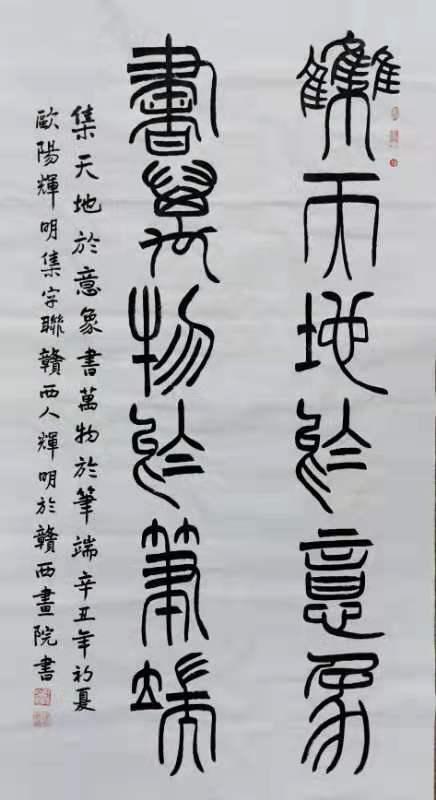 雧天地於意象
書萬物於筆端
集天地於意象書萬物於筆端辛丑年初夏
歐陽輝明集字聯贛西人輝明於贛西畫院書